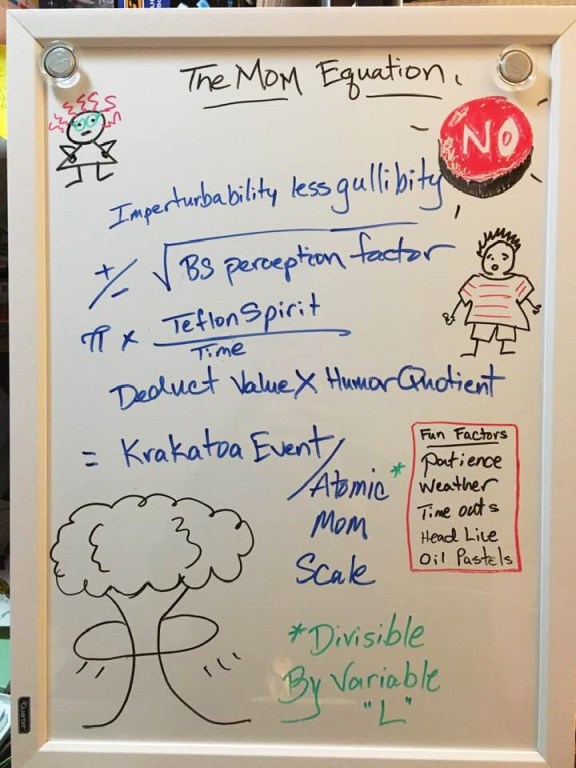 The MOM Equation.
NO
Imperturbability less gullibity
+/- √BS perception factor
π x Teflon Spirit
Time
Deduct Value X Humor Quotient
= Krakatoa Event/
Atomic *
Mom
Scale
Fun Factors
Patience
Weather
Time outs
Head Lice
Oil Pastels
*Divisible
By Variable
"L"
Quartet